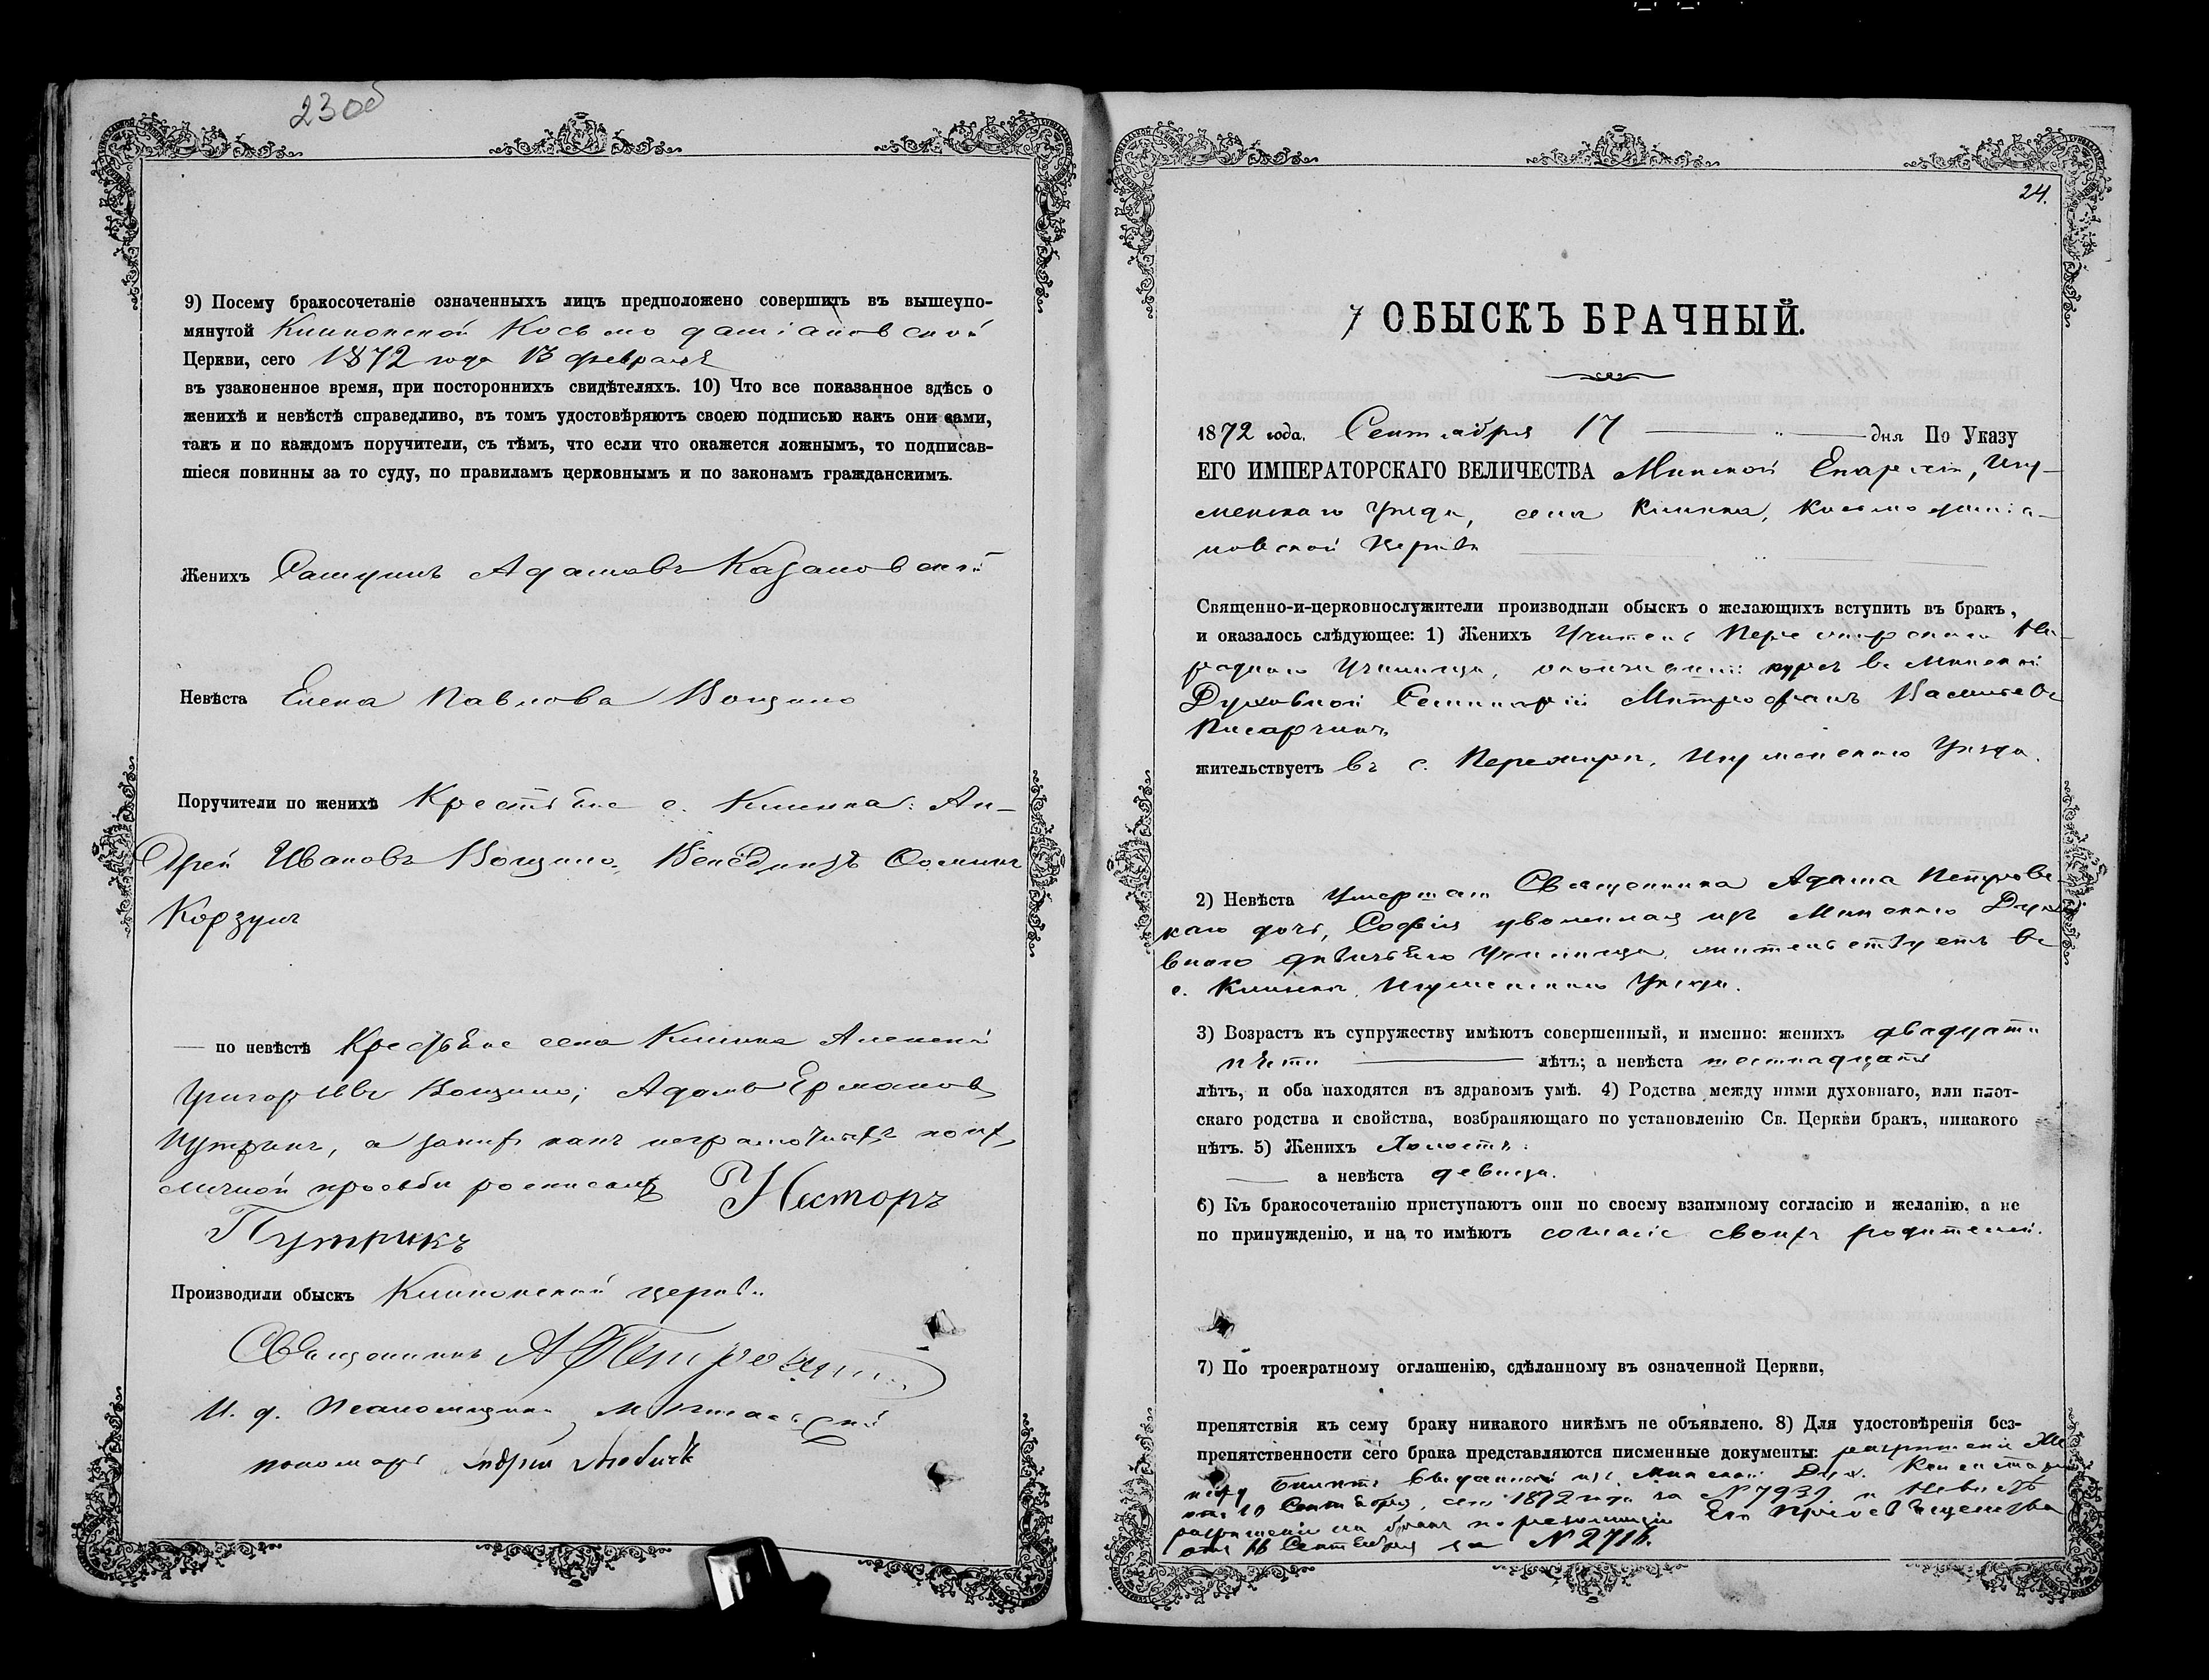 23 об
9) Посему бракосочетаніе означенныхъ лицъ предположено совершить въ вышеупо-
мянутой Клинокской Косьмо даміановской
Церкви, сего 1872 года 13 февраля
въ узаконенное время, при постороннихъ свидѣтеляхъ. 10) Что все показанное здѣсь о
женихѣ и невѣстѣ справедливо, въ томъ удостовѣряютъ своею подписью какъ они сами,
такъ и по каждомъ поручители, съ тѣмъ, что если что окажется ложнымъ, то подписав-
шіеся повинны за то суду, по правиламъ церковнымъ и по законамъ гражданскимъ.
Женихъ Самуилъ Адамовъ Казановскій
Невѣста Елена Павлова Вощило
Поручители по женихѣ Крестьяне с. Клинка: Ан-
дрей Ивановъ Вощило, Венедиктъ Фоминъ
Корзунъ
— по невѣстѣ Крестьяне села Клинка Алексѣй
Григорьевъ Вощило; Адамъ
а за нихъ какъ неграмотныхъ по ихъ
личной просьбѣ росписался Несторъ
Путрикъ
Производили обыскъ Клинокской церкви
Священникъ А Петровскій
И. д. Псаломщика
пономарь Андрей
24.
7 ОБЫСКЪ БРАЧНЫЙ.
1872 года, Сентября 17 — " — дня По Указу
ЕГО ИМПЕРАТОРСКАГО ВЕЛИЧЕСТВА Минской Епархіи, Игу-
менскаго Уѣзда, села Клинка, Космодаміа-
новской Церкви
Священно-и-церковнослужители производили обыскъ о желающихъ вступить въ бракъ,
и оказалось слѣдующее: 1) Женихъ Учитель Пережирскаго На-
роднаго Училища, окончившій курсъ въ Минской
Духовной Семинаріи Митрофанъ Васильевъ
Писарчикъ
жительствуетъ въ с. Пережирѣ, Игуменскаго Уѣзда.
2) Невѣста Умершаго Священника Адама Петровс-
каго дочь, Софія уволенная изъ Минскаго Духо-
внаго дѣвичьяго Училища, жительствуетъ въ
с. Клинкѣ, Игуменскаго Уѣзда.
3) Возрастъ къ супружеству имѣютъ совершенный, и именно: женихъ двадцати
пяти — лѣтъ; а невѣста шестнадцати
лѣтъ, и оба находятся въ здравомъ умѣ. 4) Родства между ними духовнаго, или плот-
скаго родства и свойства, возбраняющаго по установленію Св. Церкви бракъ, никакого
нѣтъ. 5) Женихъ Холостъ:
— а невѣста девица.
6) Къ бракосочетанію приступаютъ они по своему взаимному согласію и желанію, а не
по принужденію, и на то имѣютъ согласіе своихъ родителей.
7) По троекратному оглашенію, сдѣланному въ означенной Церкви,
препятствія къ сему браку никакого никѣмъ не объявлено. 8) Для удостовѣренія без-
препятственности сего брака представляются писменные документы: разрѣшеніе Же-
ниху Билетъ выданный изъ Минской Дух. Консисторіи
отъ 10 Сентября, сего 1872 года за № 7939 и Невѣстѣ
разрѣшеніе на бракъ по резолюціи Его Преосвященства
отъ 16 Сентября за №